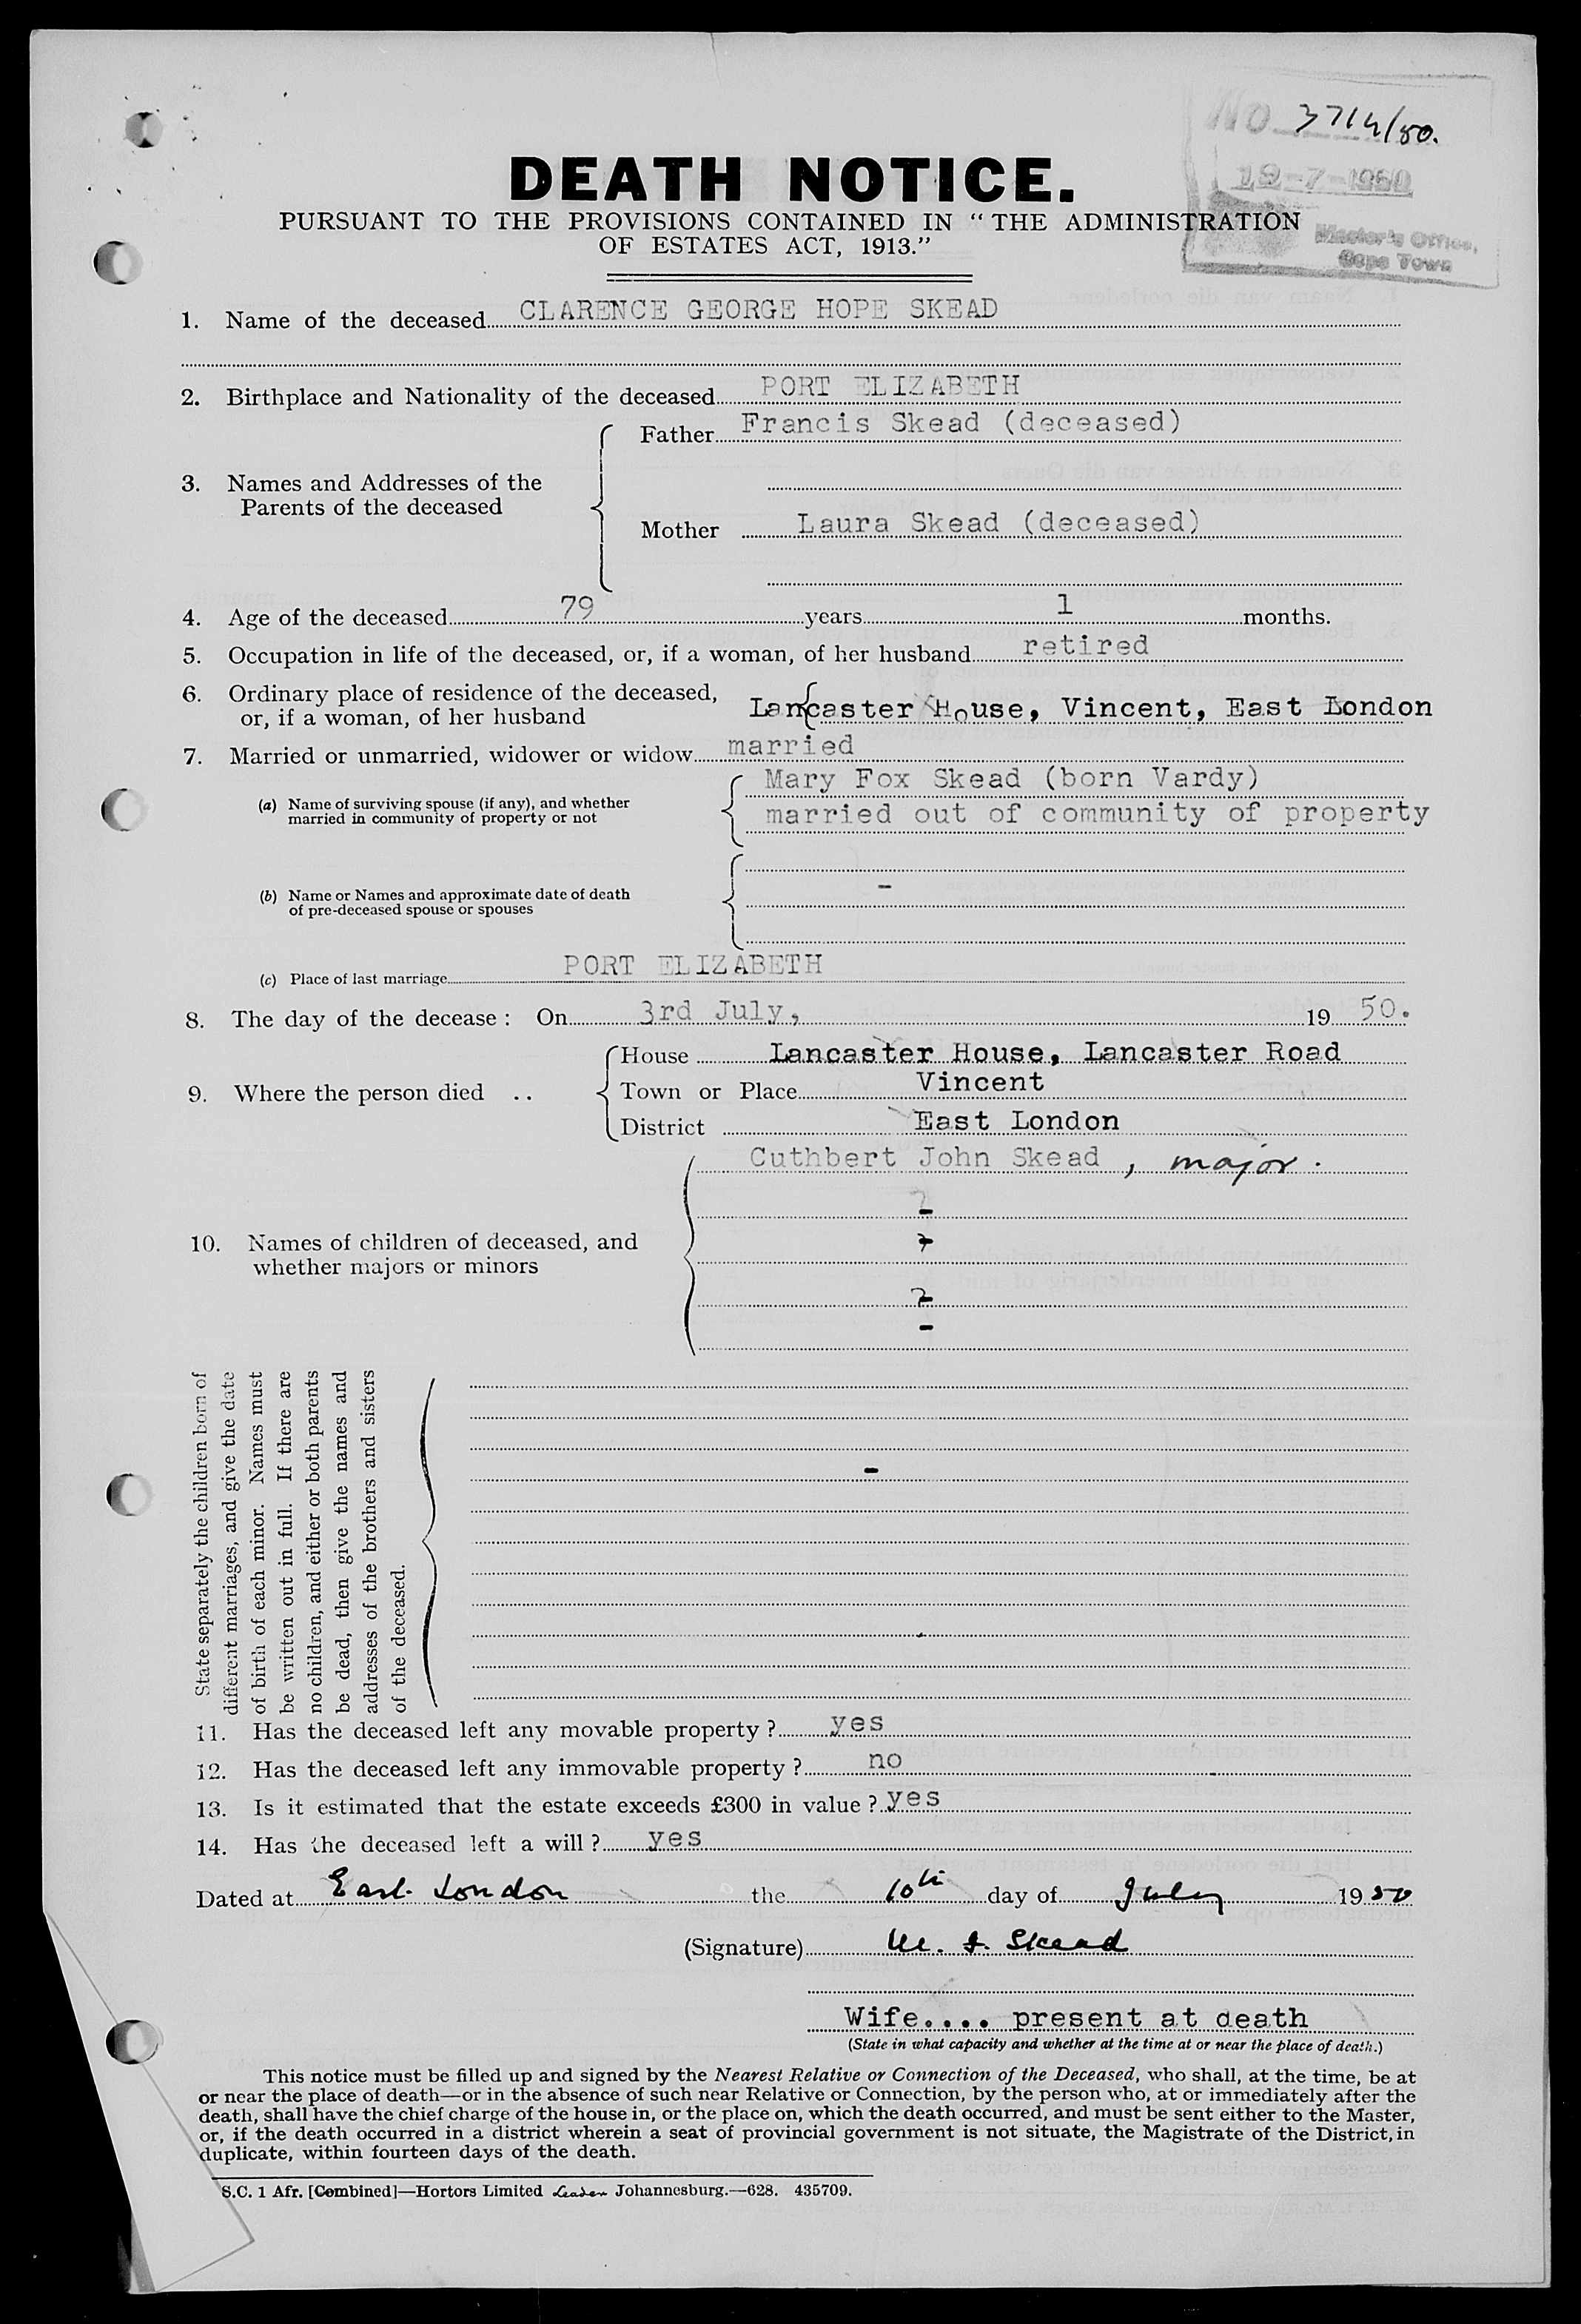 No 3714/50.
DEATH NOTICE.
PURSUANT TO THE PROVISIONS CONTAINED IN “THE ADMINISTRATION
OF ESTATES ACT, 1913.”
Master's Office,
Cape Town
1. Name of the deceased CLARENCE GEORGE HOPE SKEAD
2. Birthplace and Nationality of the deceased PORT ELIZABETH
Father Francis Skead (deceased)
3. Names and Addresses of the
Parents of the deceased
Mother Laura Skead (deceased)
4. Age of the deceased 79 years 1 months.
5. Occupation in life of the deceased, or, if a woman, of her husband retired
6. Ordinary place of residence of the deceased,
or, if a woman, of her husband Lancaster House, Vincent, East London
7. Married or unmarried, widower or widow married
(a) Name of surviving spouse (if any), and whether
married in community of property or not
Mary Fox Skead (born Vardy)
married out of community of property
(b) Name or Names and approximate date of death
of pre-deceased spouse or spouses
-
(c) Place of last marriage PORT ELIZABETH
8. The day of the decease: On 3rd July, 19 50.
House Lancaster House, Lancaster Road
9. Where the person died .. Town or Place Vincent
District East London
Cuthbert John Skead, major.
-
10. Names of children of deceased, and
whether majors or minors
-
State separately the children born of
different marriages, and give the date
of birth of each minor. Names must
be written out in full. If there are
no children, and either or both parents
be dead, then give the names and
addresses of the brothers and sisters
of the deceased.
-
11. Has the deceased left any movable property? yes
12. Has the deceased left any immovable property? no
13. Is it estimated that the estate exceeds £300 in value? yes
14. Has the deceased left a will? yes
Dated at East London the 10th day of July 1950
(Signature) M. F. Skead
Wife.... present at death
(State in what capacity and whether at the time at or near the place of death.)
This notice must be filled up and signed by the Nearest Relative or Connection of the Deceased, who shall, at the time, be at
or near the place of death—or in the absence of such near Relative or Connection, by the person who, at or immediately after the
death, shall have the chief charge of the house in, or the place on, which the death occurred, and must be sent either to the Master,
or, if the death occurred in a district wherein a seat of provincial government is not situate, the Magistrate of the District, in
duplicate, within fourteen days of the death.
S.C. 1 Afr. [Combined]—Hortors Limited Johannesburg.—628. 435709.